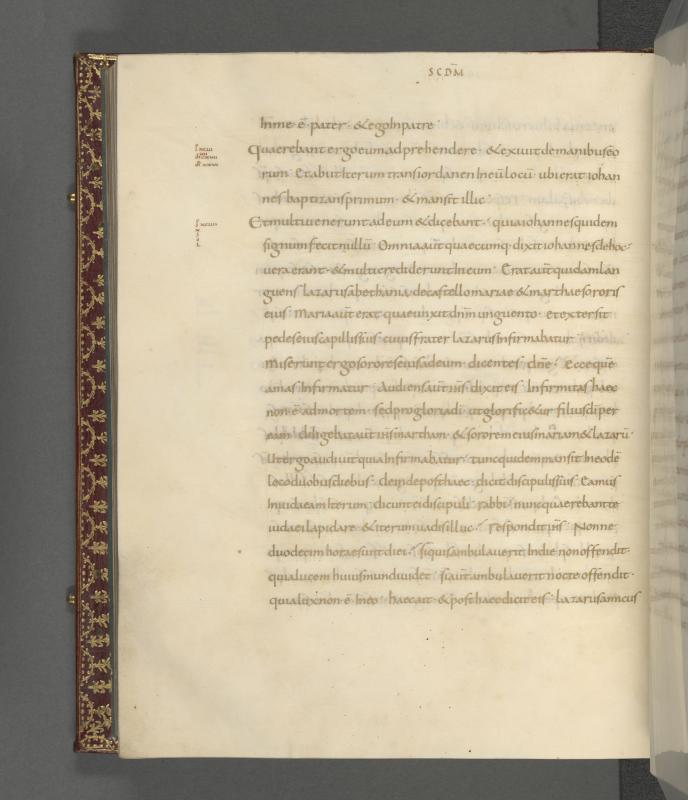 SCDM̄
In me ē · pater · & ego In patre ·
Quaerebant ergo eum adprehendere · & exivit de manibus eo
rum · Et abiit Iterum trans iordanen In eū locū · ubi erat iohan
nes baptizans primum · & mansit illic ·
Et multi venerunt ad eum & dicebant · quia iohannes quidem
signum fecit nullū · Omnia aūt quaecumq · dixit iohannes de hoc ·
vera erant · & multi crediderunt In eum · Erat aūt quidam lan
guens lazarus a bethania · de castello mariae & marthae sororis
eius · Maria aūt erat quae unxit dnm̄ unguento · et extersit
pedes eius capillis suis · cuius frater lazarus Infirmabatur ·
Miserunt ergo sorores eius ad eum dicentes · dnē · Ecce quē
amas Infirmatur · Audiens aūt ihs̄ dixit eis · Infirmitas haec
non ē ad mortem · sed pro gloria dī · ut glorific&ur filius dī per
eam · diligebat aūt ihs̄ martham · & sororem eius mariam & lazarū ·
Ut ergo audivit quia Infirmabatur · tunc quidem mansit In eodē
loco duobus diebus · deinde post haec · dicit discipulis suis · Eamus
In iudaeam Iterum · dicunt ei discipuli · rabbi · nunc quaerebant te
iudaei lapidare · & iterum uadis illuc · respondit ihs̄ · Nonne
duodecim horae sunt diei · si quis ambulaverit In die non offendit ·
quia lucem huius mundi uidet · si aūt ambulaverit nocte offendit ·
quia lux non ē In eo · haec ait · & post haec dicit eis · lazarus amicus